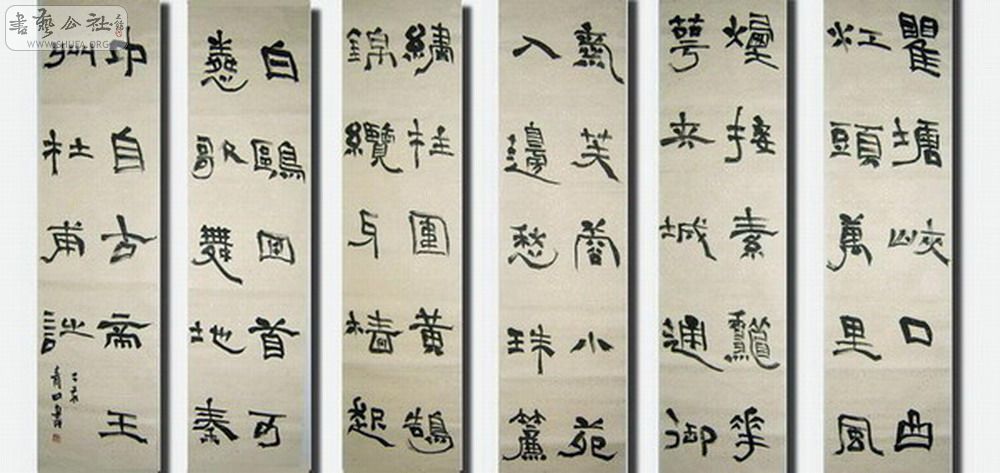 瞿塘峽口曲
江頭萬里風
煙接素秋花
萼夾城通御
氣芙蓉小苑
入邊愁珠簾
繡柱圍黃鵠
錦纜牙檣起
白鷗回首可
憐歌舞地秦
中自古帝王
州杜甫詩
書藝公社
WWW.SHUFA.ORG